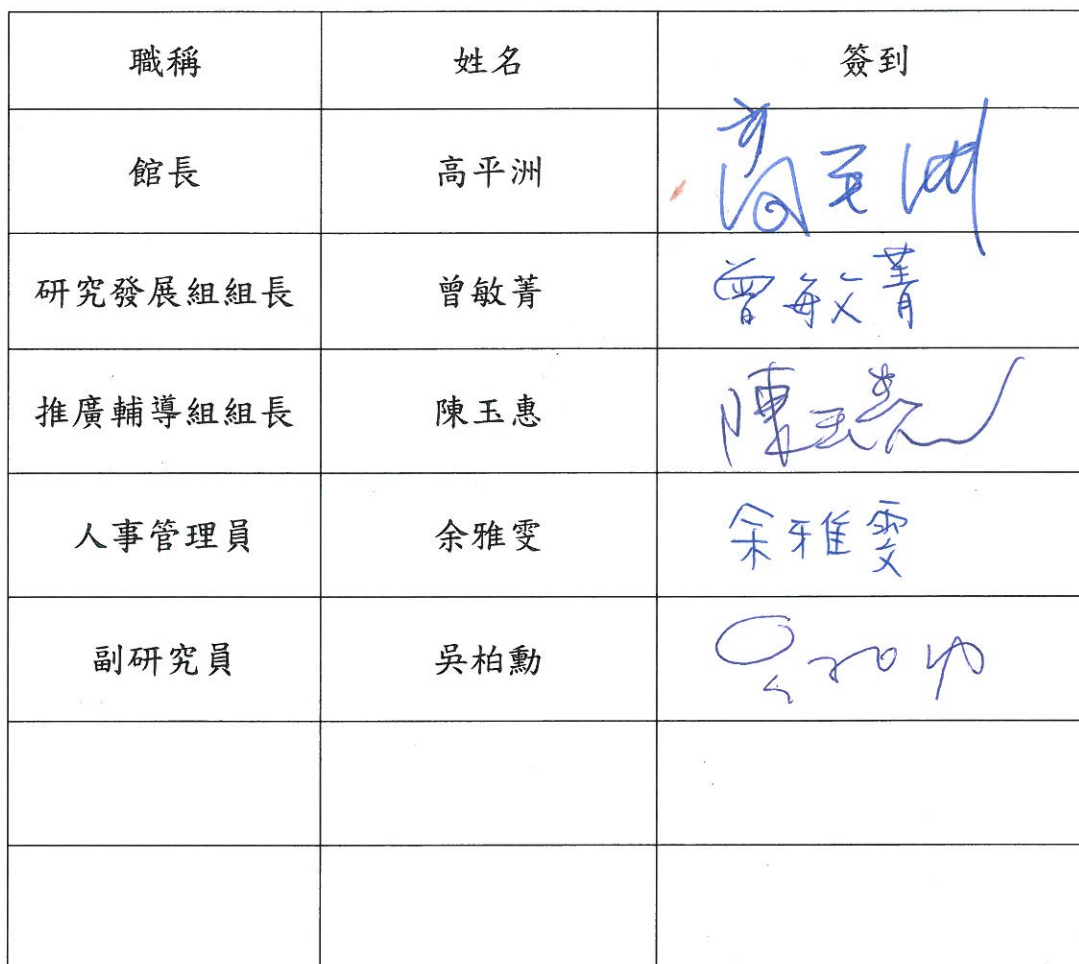 職稱 姓名 簽到
館長 高平洲 高平洲
研究發展組組長 曾敏菁 曾敏菁
推廣輔導組組長 陳玉惠 陳玉惠
人事管理員 余雅雯 余雅雯
副研究員 吳柏勳